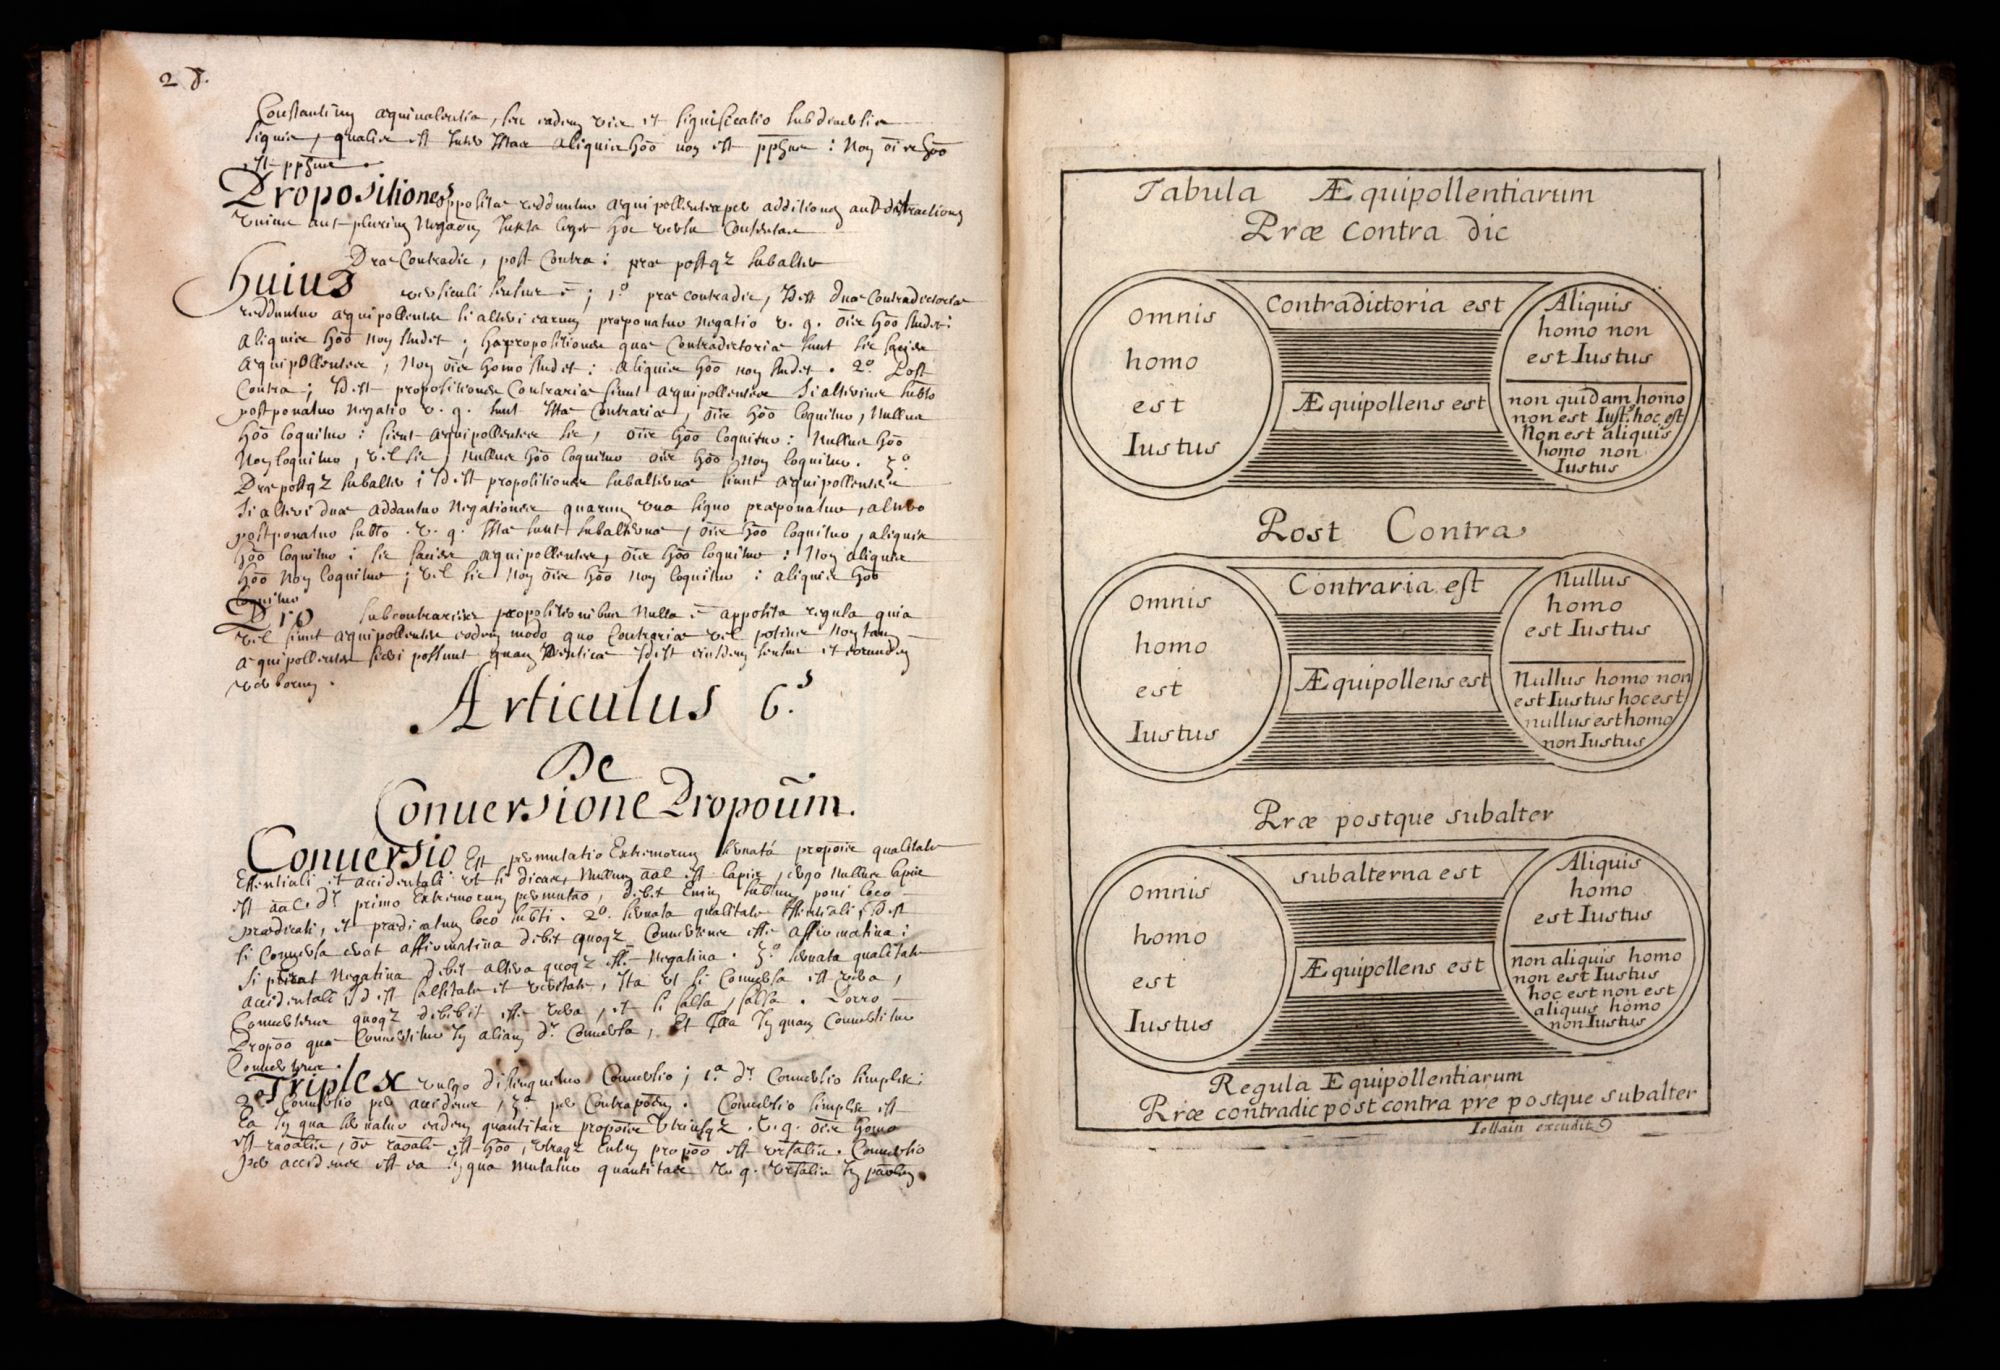 28.
Constantium æquivalentia, seu eadem vis et significatio subdiversis
signis, qualis est inter istas aliquis hōō non est pphus : Non oīs hōō
est pphus.
Propositiones oppositæ redduntur æquipollentes per additionem aut detractionem
unius aut plurium Negaōum Iuxta leges hoc versu Contentas
Præ Contradic, post Contra : præ postq₂ subalter
Huius versiculi sensus ē ; 1.º præ contradic, Idest duæ Contradictoriæ
redduntur æquipollentes si alteri earum præponatur negatio v. g. oīs hōō studet :
aliquis hōō non studet ; hæ propositiones quæ Contradictoriæ sunt sic
æquipollentes, Non oīs homo studet : aliquis hōō non studet . 2.º Post
Contra ; Idest propositiones Contrariæ fiunt æquipollentes si alterius subto
postponatur negatio v. g. sunt istæ Contrariæ, oīs hōō loquitur, Nullus
hōō loquitur : fient æquipollentes sic, oīs hōō loquitur : Nullus hōō
Non loquitur, vel sic, Nullus hōō loquitur oīs hōō non loquitur . 3.º
Præ postq₂ subalter ; Idest propositiones subalternæ fiunt æquipollentes
si alteri duæ addantur Negationes quarum una signo præponatur, altera
postponatur subto . v. g. istæ sunt subalternæ, oīs hōō loquitur, aliquis
hōō loquitur ; sic facies æquipollentes, oīs hōō loquitur : Non aliquis
hōō Non loquitur ; vel sic Non oīs hōō non loquitur : aliquis hōō
loquitur
Pro subcontrariis propositionibus Nulla ē apposita regula quia
vel fiunt æquipollentes eodem modo quo Contrariæ vel potius Non tam
æquipollentes fieri possunt quam Identicæ Idest eiusdem sensus et eorundem
verborum .
Articulus 6.s
De
Conuersione Propoūm.
Conuersio Est permutatio Extremorum servatá propoīs qualitate
Essentiali et accidentali ut si dicas, Nullum aal est lapis, ergo nullus lapis
est aal dr primo Extremorum permutāo, debet Enim subtum poni loco
prædicati, et prædicatum loco subti . 2.º servata qualitate Essentiali, Idest
si Conversa erat affirmativa debet quoq₂ Convertens esse affirmativa ;
si Negativa debet altera quoq₂ esse Negativa . 3.º servata qualitate
accidentali id est falsitate et veritate, Ita ut si Conversa est vera,
Convertens quoq₂ debebit esse vera, et si falsa, falsa . Porro
Propōō quæ Convertitur In aliam dr Conversa, Et Illa In quam Convertitur
Convertens .
Triplex vulgo distinguitur Conversio ; 1.a dr Conversio simplex ;
2.a Conversio per accidens, 3.a per Contrapōēm . Conversio simplex est
Ea In qua servatur eadem quantitas propoīs utriusq₂ . v. g. oīs homo
est raōalis, oē raōale est hōō, utraq₂ Enim propōō est ursalis . Conversio
per accidens est ea In qua mutatur quantitas v. g. ursalis In parlem
Tabula Æquipollentiarum
Præ contra dic
Omnis
homo
est
Iustus
Contradictoria est
Æquipollens est
Aliquis
homo non
est Iustus
non quidam homo
non est Iust. hoc est
Non est aliquis
homo non
Iustus
Post Contra
Omnis
homo
est
Iustus
Contraria est
Æquipollens est
Nullus
homo
est Iustus
Nullus homo non
est Iustus hoc est
nullus est homo
non Iustus
Præ postque subalter
Omnis
homo
est
Iustus
subalterna est
Æquipollens est
Aliquis
homo
est Iustus
non aliquis homo
non est Iustus
hoc est non est
aliquis homo
non Iustus
Regula Æquipollentiarum
Præ contradic post contra pre postque subalter
Iollain excudit